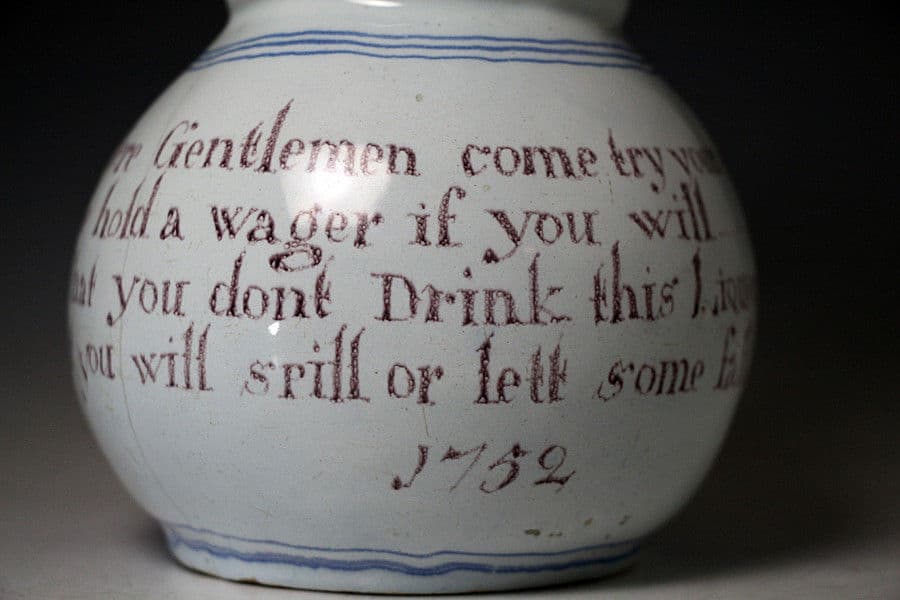 Gentlemen come try your
hold a wager if you will
you dont Drink this Liquor
you will spill or lett some fall
1752